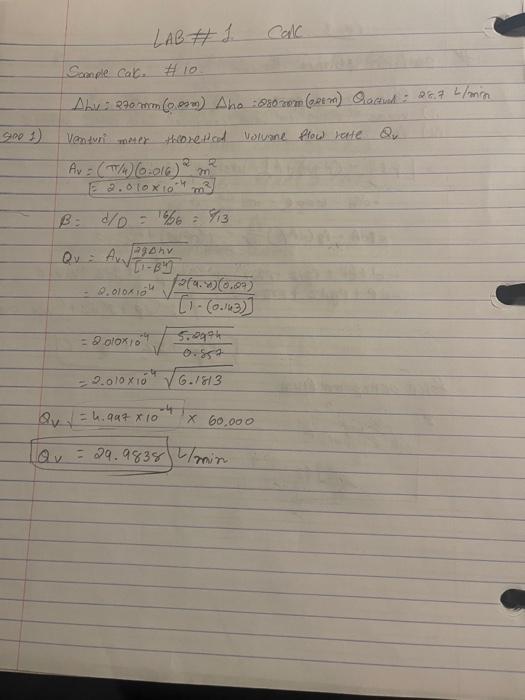 LAB # 1 Calc
Sample Calc. # 10
Δhv = 270mm (0.27m) Δho = 280mm (0.28m) Qactual = 28.7 L/min
Step 1) Venturi meter theoretical volume flow rate Qv
Av = (π/4)(0.016)² m²
= 2.010x10⁻⁴ m²
B = d/D = 16/26 = 8/13
Qv = Av √(2gΔhv / [1-B⁴])
= 2.010x10⁻⁴ √(2(9.81)(0.27) / [1-(0.143)])
= 2.010x10⁻⁴ √(5.2974 / 0.857)
= 2.010x10⁻⁴ √6.1813
Qv = 4.997 x10⁻⁴ x 60,000
Qv = 29.9838 L/min